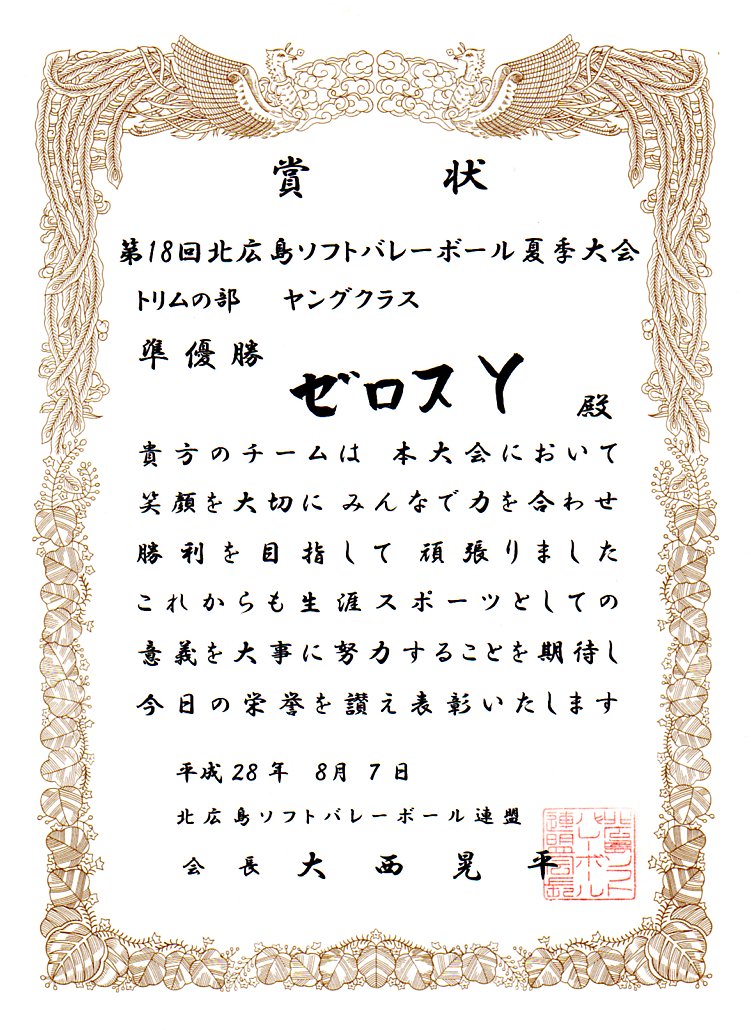 賞状
第18回北広島ソフトバレーボール夏季大会
トリムの部 ヤングクラス
準優勝
ゼロスY 殿
貴方のチームは 本大会において
笑顔を大切に みんなで力を合わせ
勝利を目指して 頑張りました
これからも生涯スポーツとしての
意義を大事に努力することを期待し
今日の栄誉を讃え表彰いたします
平成28年 8月 7日
北広島ソフトバレーボール連盟
会長 大西晃平
北広島ソフト
バレーボール
連盟会長